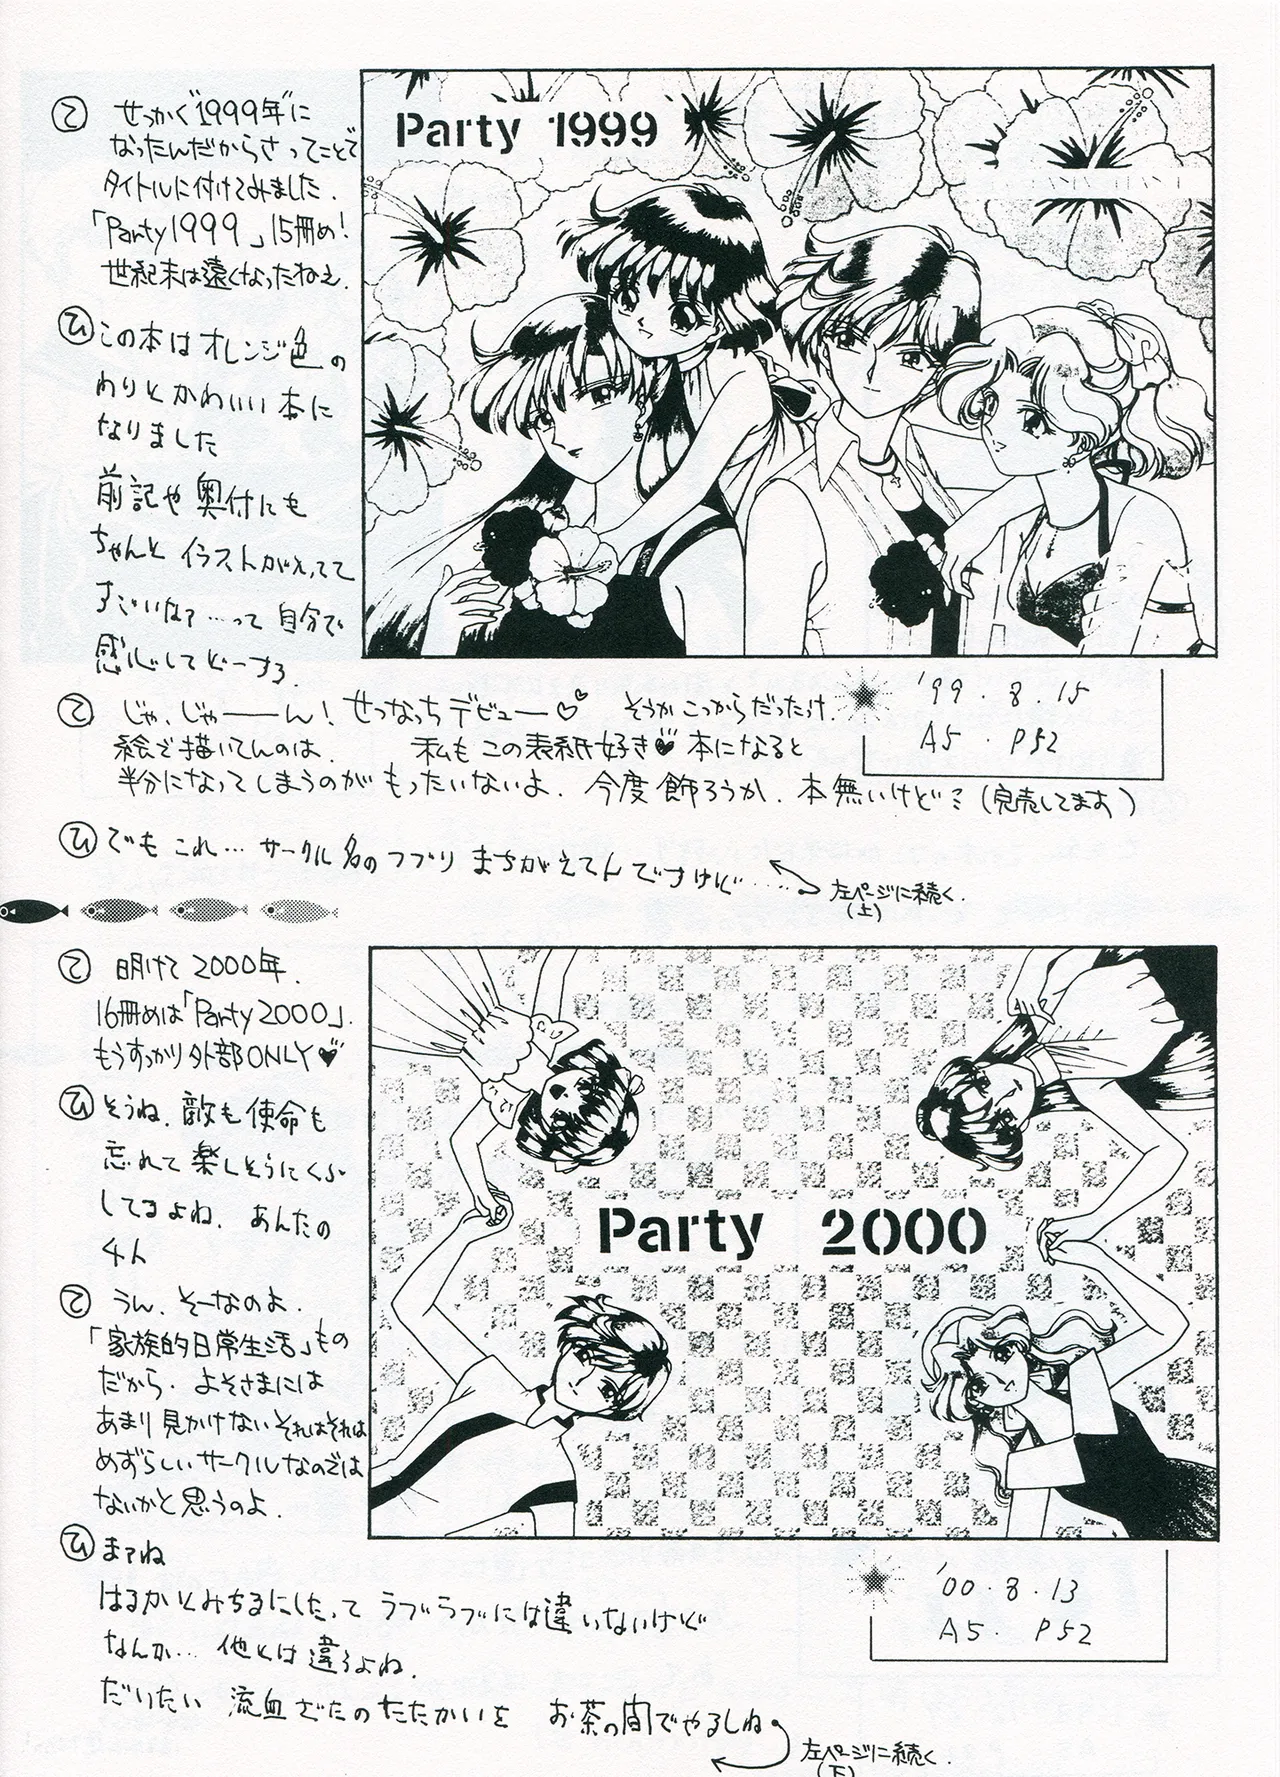 て せっかく"1999年"に
なったんだからさ ってことで
タイトルに付けてみました.
「Party1999」15冊め!
世紀末は遠くなったねえ.
ひ この本は オレンジ色の
わりと かわいい 本に
なりました
前記や 奥付にも
ちゃんと イラストがえってて
すごいなァ…って 自分で
感心して どーする.
Party 1999
て じゃ、じゃーーん! せつなっち デビュー♡ そうか こっからだったけ.
絵で描いてんのは. 私も この表紙好き♥ 本になると
半分になって しまうのが もったいないよ. 今度 飾ろうか. 本 無いけど (完売してます)
'99.8.15
A5. P52
ひ でも これ… サークル名の つづり まちがえてんですけど……
左ページに続く.
(上)
て 明けて 2000年.
16冊めは「Party 2000」.
もうすっかり 外部ONLY♥
ひ そうね. 敵も 使命も
忘れて 楽しそうにくら
してるよね. あんたの
4人
て うん. そーなのよ.
「家族的日常生活」もの
だから. よそさまには
あまり 見かけない それはそれは
めずらしい サークルなのでは
ないかと 思うのよ.
Party 2000
ひ まァね
はるかとみちるにしたって ラブラブには違いないけど
なんか… 他とは 違うよね.
だいたい 流血ざたの たたかいを お茶の間でやるしね
'00.8.13
A5. P52
左ページに続く.
(下)